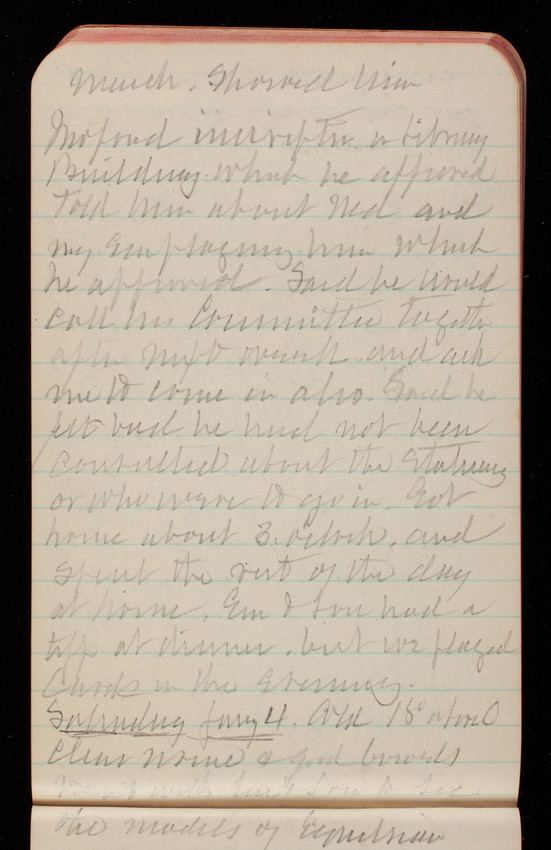 much. Showed him
Mofond inscription in Library
Building which he approved
Told him about Ned and
my Employing him which
he approved. Said he would
call his Committee together
after next week and ask
me to come in also. Said he
felt bad he had not been
consulted about the Statuary
or who were to go in. Got
home about 3. oclock. and
spent the rest of the day
at home. Em & Lou had a
tiff at dinner. but we played
Cards in the Evening.
Saturday Jany 4. Cold 18° above 0
Clear none a good bowels
Went with Em & Lou to see
the models of Equestrian